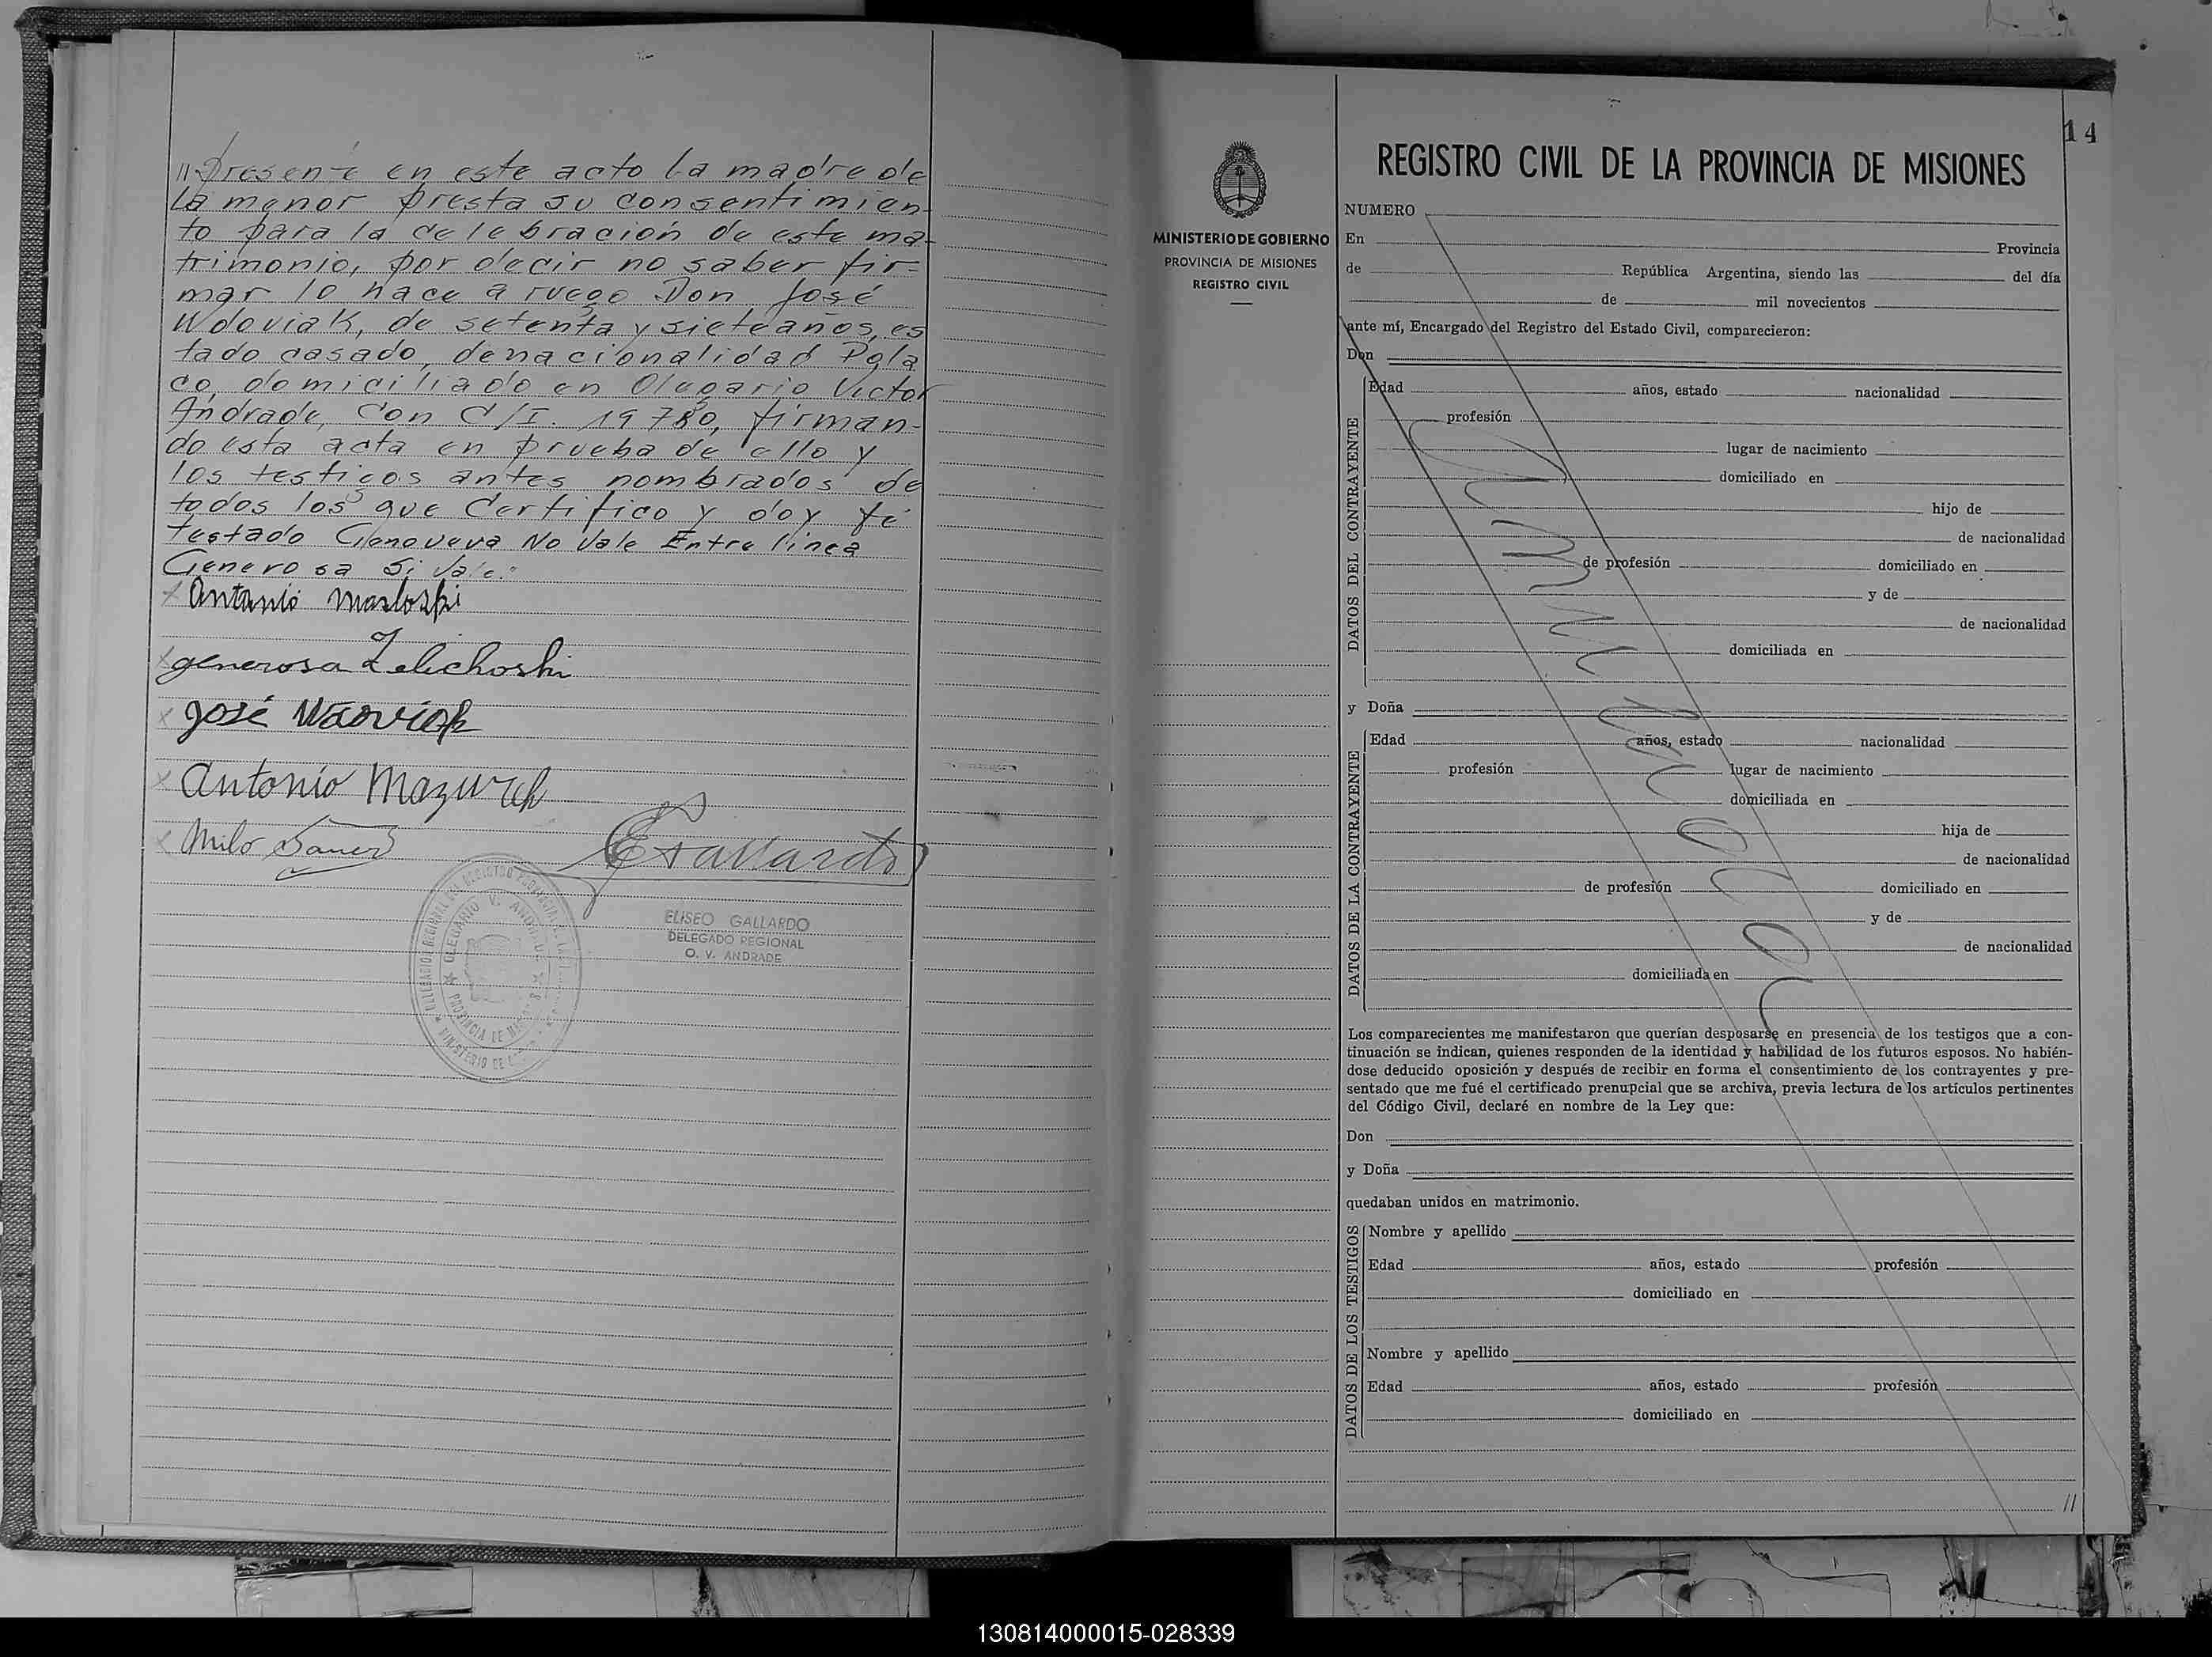 "Presente en este acto la madre de
la menor presta su consentimien-
to para la celebración de este ma-
trimonio, por decir no saber fir-
mar lo hace a ruego Don José
Wdoviak, de setenta y siete años, es
tado casado, de nacionalidad Pola
co, domiciliado en Olegario Victor
Andrade, con C/I. 19780, firman-
do esta acta en prueba de ello y
los testigos antes nombrados de
todos los que Certifico y doy fé
testado Genoveva No Vale Entre línea
Generosa Si Vale."
x Antonio
x generosa Zelichoski
x José Wdoviak
x Antonio Mazurek
x Milo
ELISEO GALLARDO
DELEGADO REGIONAL
O. V. ANDRADE
OLEGARIO V. ANDRADE
PROVINCIA DE MISIONES
14
MINISTERIO DE GOBIERNO
PROVINCIA DE MISIONES
REGISTRO CIVIL
REGISTRO CIVIL DE LA PROVINCIA DE MISIONES
NUMERO
En Provincia
de República Argentina, siendo las del día
de mil novecientos
ante mí, Encargado del Registro del Estado Civil, comparecieron:
Don
DATOS DEL CONTRAYENTE
Edad años, estado nacionalidad
profesión
lugar de nacimiento
domiciliado en
hijo de
de nacionalidad
de profesión domiciliado en
y de
de nacionalidad
domiciliada en
y Doña
DATOS DE LA CONTRAYENTE
Edad años, estado nacionalidad
profesión lugar de nacimiento
domiciliada en
hija de
de nacionalidad
de profesión domiciliado en
y de
de nacionalidad
domiciliada en
Los comparecientes me manifestaron que querían desposarse en presencia de los testigos que a con-
tinuación se indican, quienes responden de la identidad y habilidad de los futuros esposos. No habién-
dose deducido oposición y después de recibir en forma el consentimiento de los contrayentes y pre-
sentado que me fué el certificado prenupcial que se archiva, previa lectura de los artículos pertinentes
del Código Civil, declaré en nombre de la Ley que:
Don
y Doña
quedaban unidos en matrimonio.
DATOS DE LOS TESTIGOS
Nombre y apellido
Edad años, estado profesión
domiciliado en
Nombre y apellido
Edad años, estado profesión
domiciliado en
//
130814000015-028339